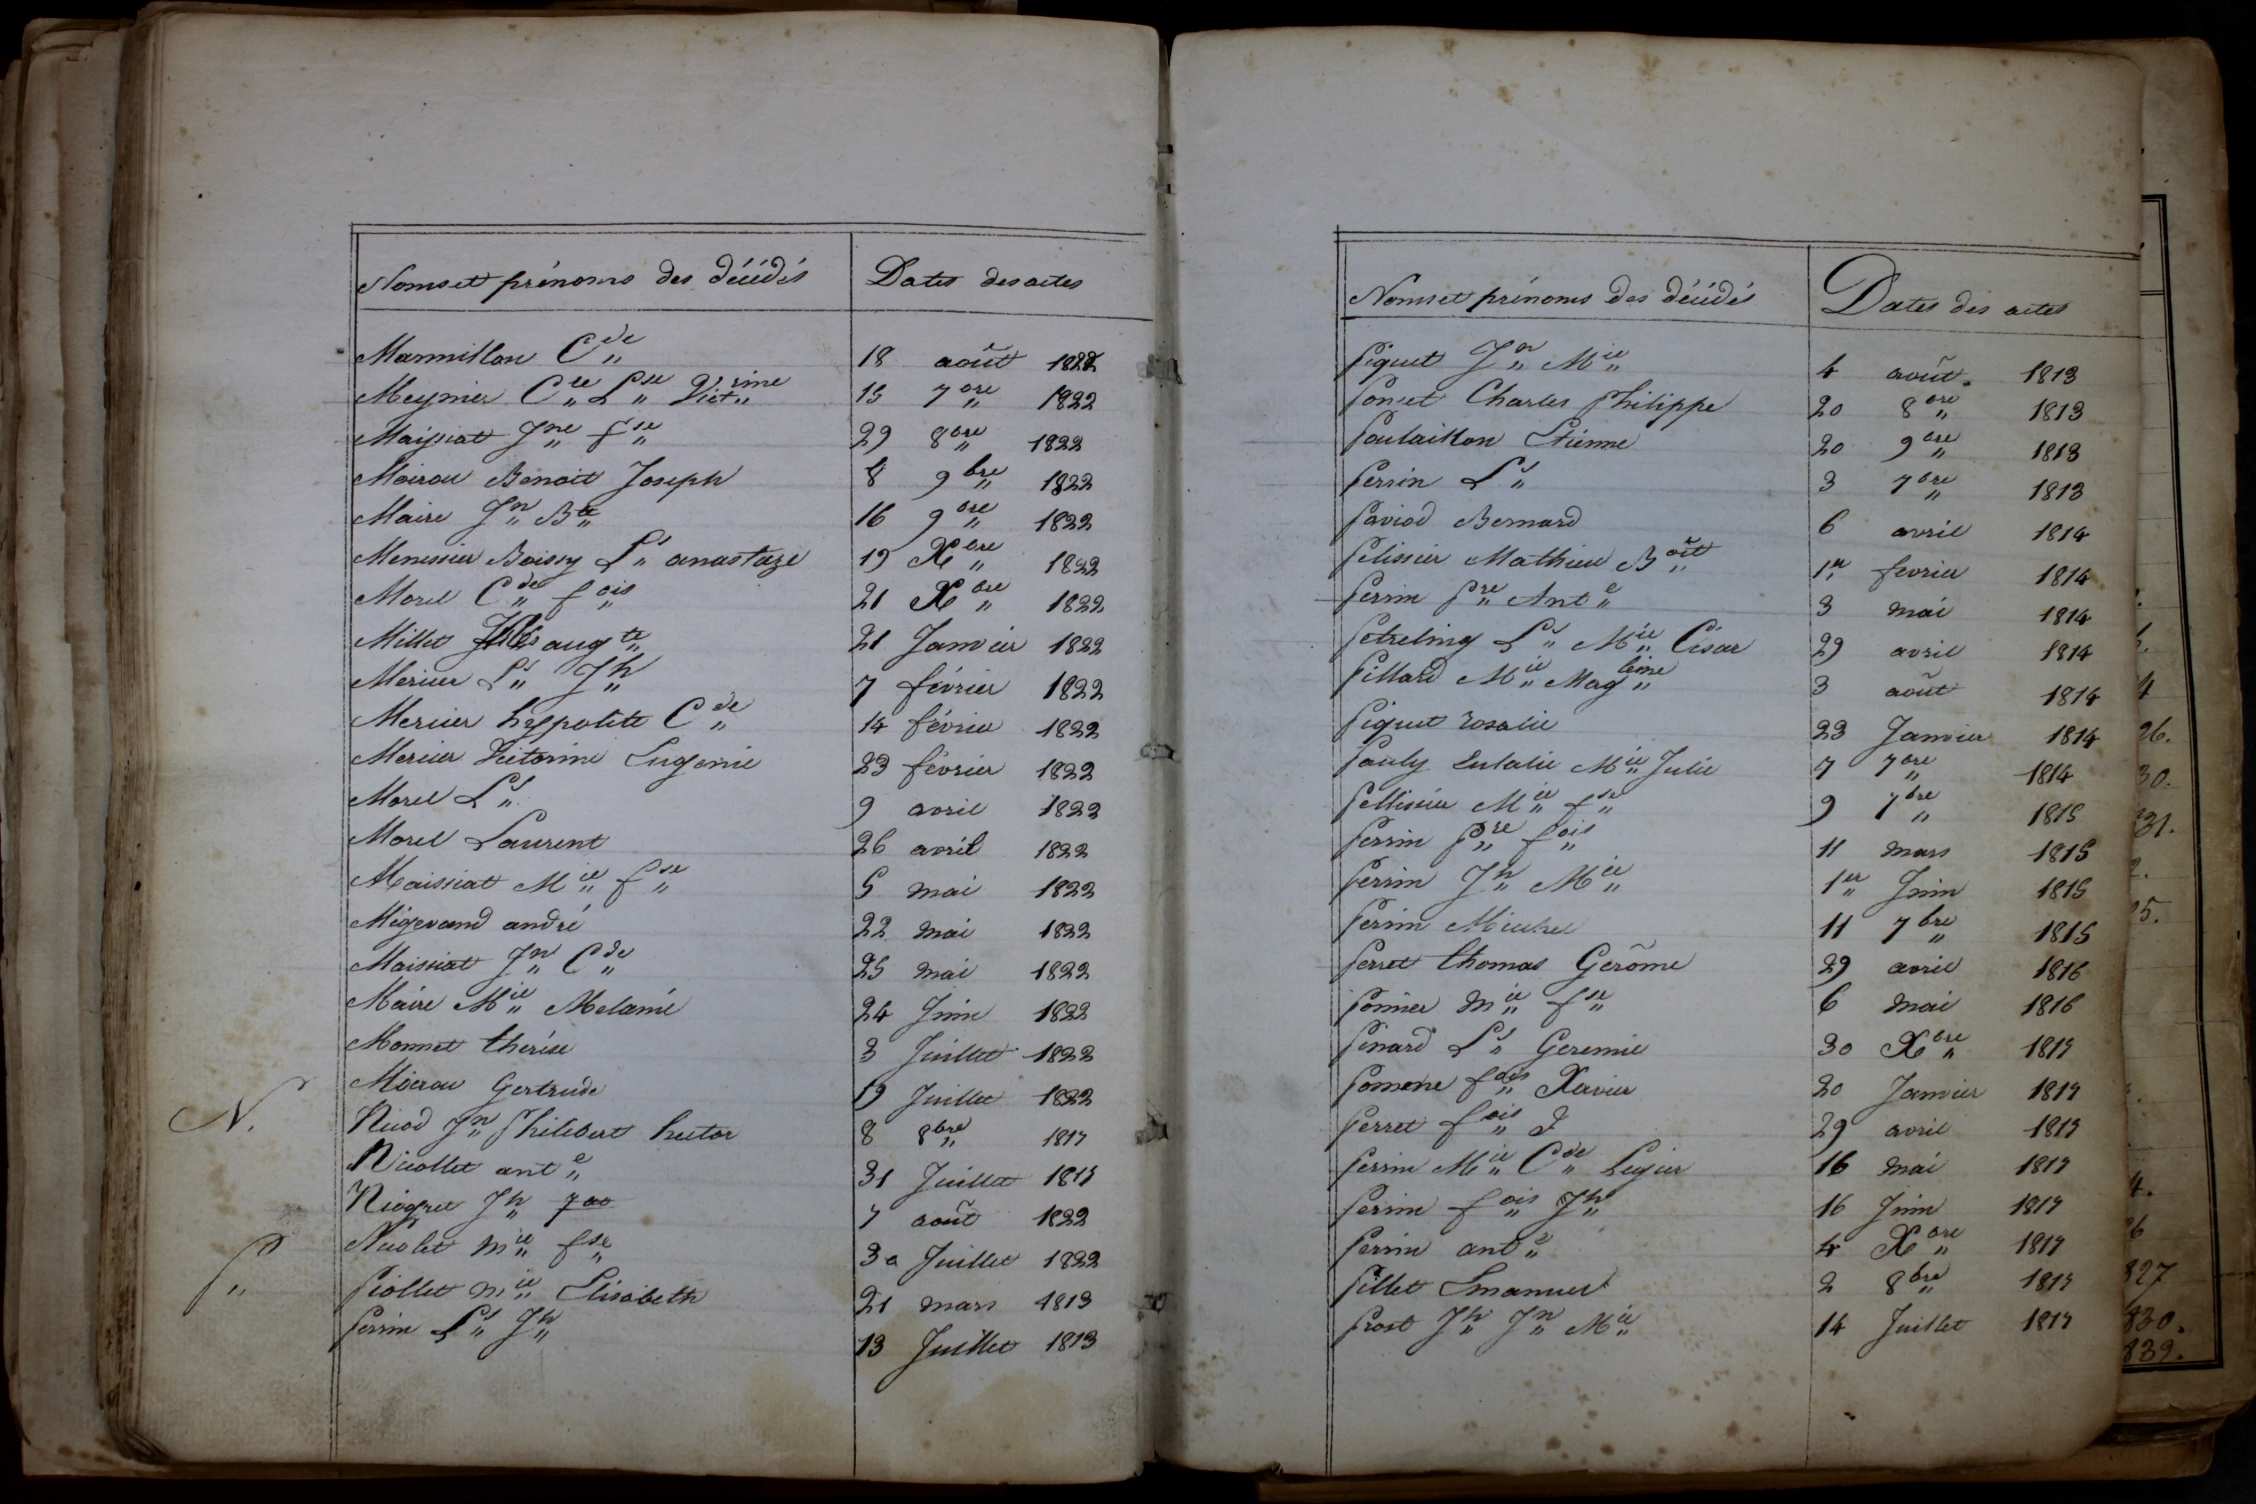 Noms et prénoms des décédés Dates des actes
Marmillon C.de 18 août 1822
Meynier C.se L.se Vict.rine 15 7bre 1822
Maissiat J.ne f.se 29 8bre 1822
Moirou Benoit Joseph 8 9bre 1822
Maire J.n B.te 16 9bre 1822
Menissier Boissy L.s anastaze 19 Xbre 1822
Morel C.de f.ois 21 Xbre 1822
Millet Jules aug.te 21 Janvier 1822
Mercier L.s J.h 7 février 1822
Mercier hyppolite C.de 14 février 1822
Mercier Victorine Eugenie 23 février 1822
Morel L.s 9 avril 1822
Morel Laurent 26 avril 1822
Maissiat M.ie f.se 5 mai 1822
Mégevand andré 22 mai 1822
Maissiat J.n C.de 25 mai 1822
Maire M.ie Melanie 24 Juin 1822
Monnet thérèse 3 Juillet 1822
Moirou Gertrude 19 Juillet 1822
N. Nicod J.n Philibert hector 8 8bre 1817
Nicollet ant.e 31 Juillet 1817
Niogret J.h 7 ao 7 août 1822
Nicolet m.ie f.se 30 Juillet 1822
P. Piollet m.ie Elisabeth 21 mars 1813
Perrin L.s J.h 13 Juillet 1813
Noms et prénoms des décédés Dates des actes
Piquet J.n M.ie 4 août. 1813
Poncet Charles Philippe 20 8bre 1813
Poulaillon Etienne 20 9bre 1813
Perrin L.s 3 7bre 1813
Paviod Bernard 6 avril 1814
Pelissier Mathieu B.oit 1er fevrier 1814
Perrin P.re Ant.e 3 mai 1814
Petreling L.s M.ie César 29 avril 1814
Pillard M.ie Mag.leine 3 août 1814
Piquet rosalie 23 Janvier 1814
Pauly Eulalie M.ie Julie 7 7bre 1814
Pellissier M.ie f.se 9 7bre 1815
Perrin P.re f.ois 11 mars 1815
Perrin J.h M.ie 1er Juin 1815
Perrin Michel 11 7bre 1815
Perret thomas Gerôme 29 avril 1816
Ponnier m.ie f.se 6 mai 1816
Pinard L.s Geremie 30 Xbre 1817
Pomone f.ois Xavier 20 Janvier 1817
Perret f.ois J 29 avril 1817
Perrin M.ie C.de Legier 16 mai 1817
Perrin f.ois J.h 16 Juin 1817
Perrin ant.e 4 Xbre 1817
Pillet Emanuel 2 8bre 1817
Prost J.h J.n M.ie 14 Juillet 1817
26.
30.
31.
827
830.
839.